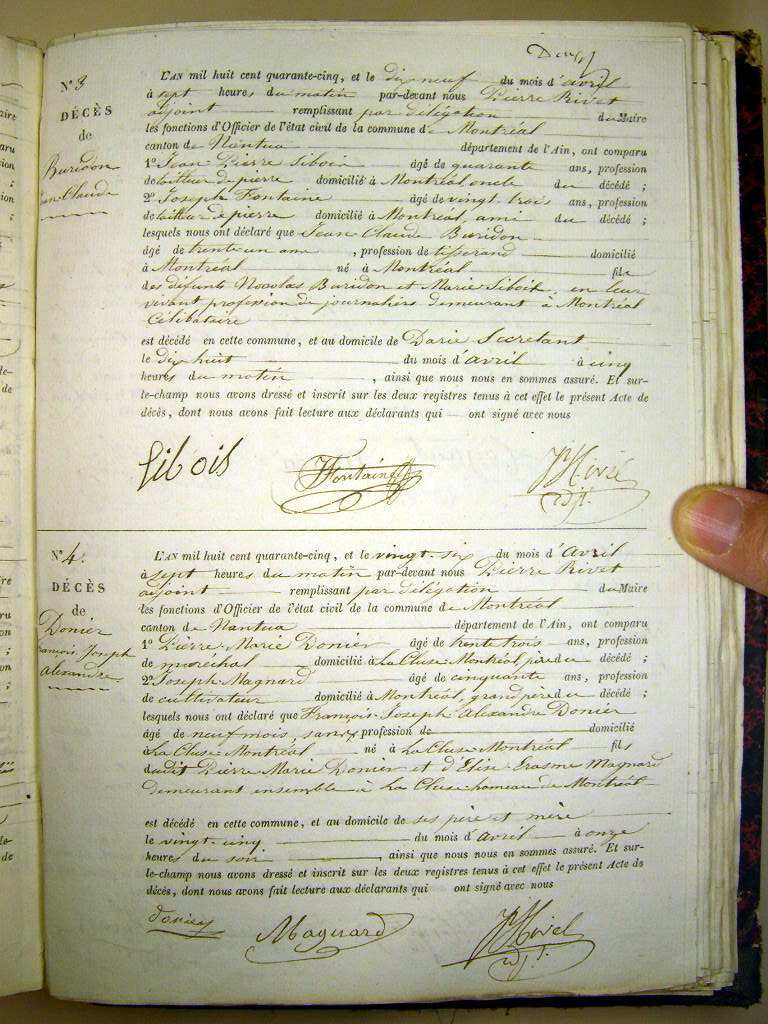 Deux
N° 3
DÉCÈS
de
Buridon
Jean Claude
L'AN mil huit cent quarante-cinq, et le dix neuf du mois d'avril
à sept heures du matin par-devant nous Pierre Rivet
adjoint remplissant par délégation du Maire
les fonctions d'Officier de l'état civil de la commune de Montréal
canton de Nantua département de l'Ain, ont comparu
1° Jean Pierre Sibois âgé de quarante ans, profession
de tailleur de pierre domicilié à Montréal oncle du décédé ;
2° Joseph Fontaine âgé de vingt trois ans, profession
de tailleur de pierre domicilié à Montréal, ami du décédé ;
lesquels nous ont déclaré que Jean Claude Buridon
âgé de trente un ans, profession de tisserand domicilié
à Montréal né à Montréal fils
des défunts Nocolas Buridon et Marie Sibois, en leur
vivant profession de journaliers demeurant à Montréal
Célibataire
est décédé en cette commune, et au domicile de Secretant
le dix huit du mois d'avril à cinq
heures du matin, ainsi que nous nous en sommes assuré. Et sur-
le-champ nous avons dressé et inscrit sur les deux registres tenus à cet effet le présent Acte de
décès, dont nous avons fait lecture aux déclarants qui ont signé avec nous
Sibois Fontaine Rivet
adjt.
N° 4.
DÉCÈS
de
Donier
François Joseph
Alexandre
L'AN mil huit cent quarante-cinq, et le vingt-six du mois d'avril
à sept heures du matin par-devant nous Pierre Rivet
adjoint remplissant par délégation du Maire
les fonctions d'Officier de l'état civil de la commune de Montréal
canton de Nantua département de l'Ain, ont comparu
1° Pierre Marie Donier âgé de trente trois ans, profession
de maréchal domicilié à La Cluse Montréal, père du décédé ;
2° Joseph Magnard âgé de cinquante ans, profession
de cultivateur domicilié à Montréal, grand père du décédé ;
lesquels nous ont déclaré que François-Joseph Alexandre Donier
âgé de neuf mois, sans profession de domicilié
à La Cluse Montréal né à La Cluse Montréal fils
dudit Pierre Marie Donier et d'Elise Erasme Magnard
demeurant ensemble à La Cluse hameau de Montréal
est décédé en cette commune, et au domicile de ses père et mère
le vingt-cinq du mois d'avril à onze
heures du soir, ainsi que nous nous en sommes assuré. Et sur-
le-champ nous avons dressé et inscrit sur les deux registres tenus à cet effet le présent Acte de
décès, dont nous avons fait lecture aux déclarants qui ont signé avec nous
donier Magnard Rivet
adjt.